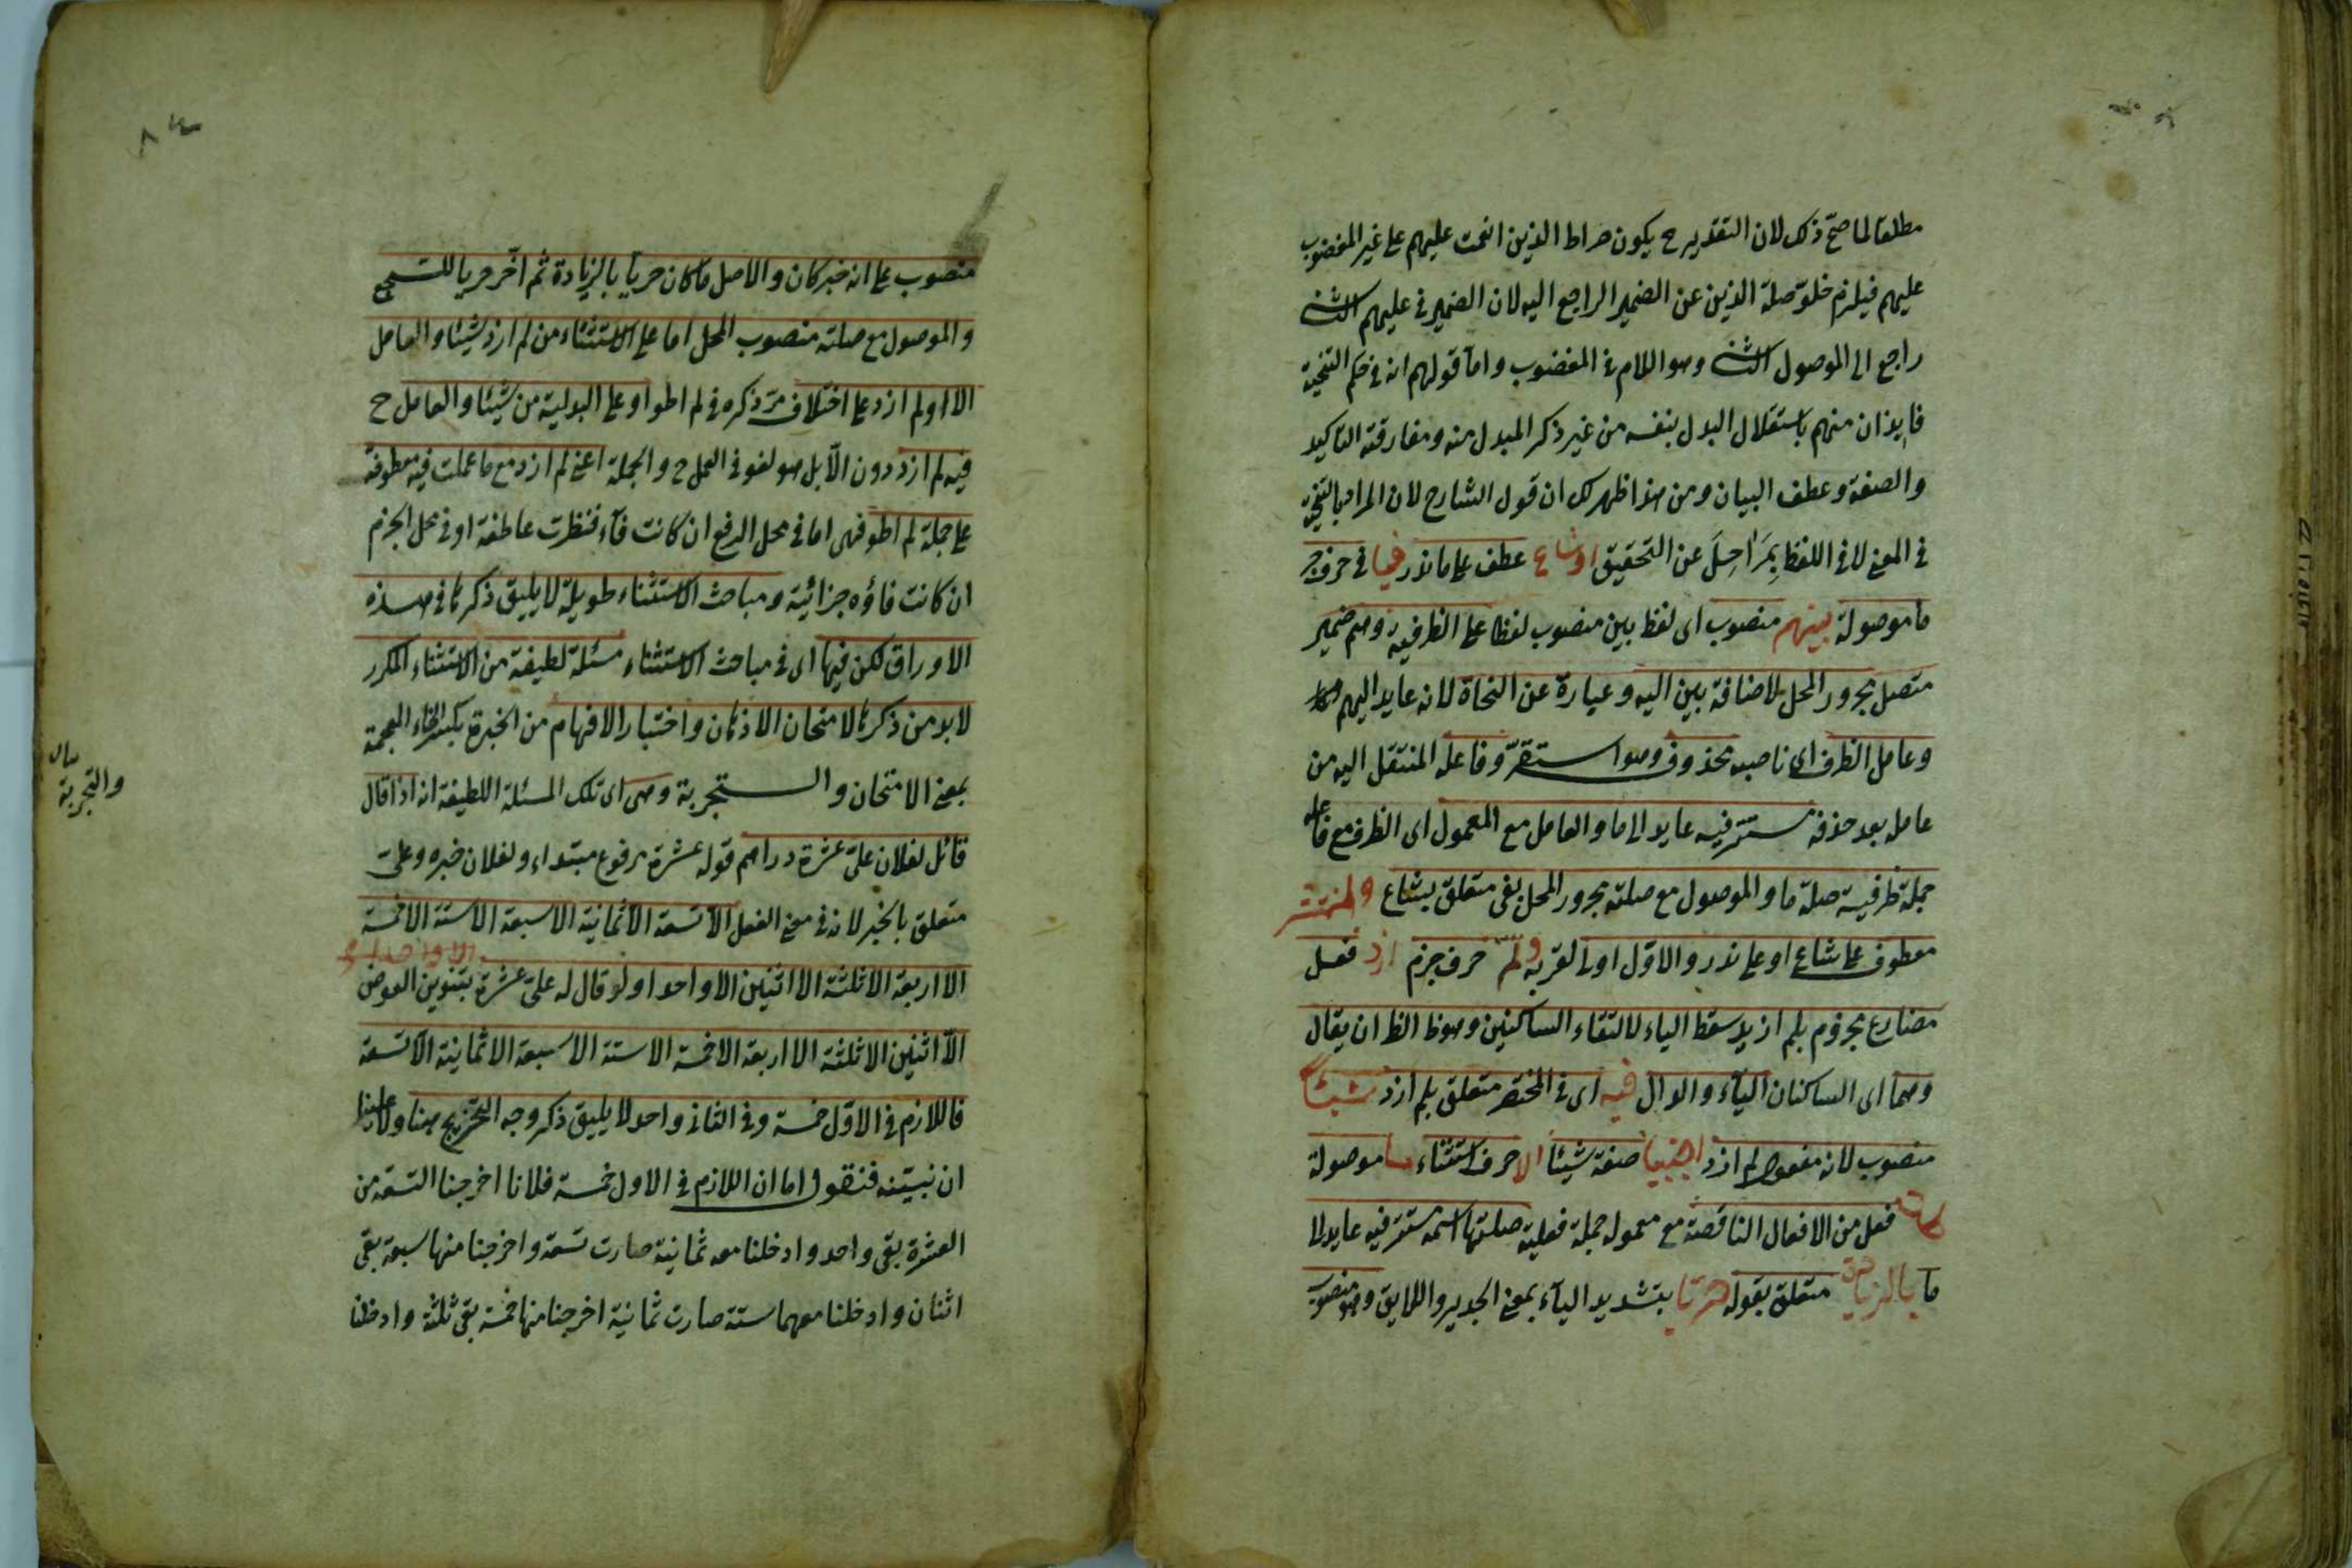 مطلقا لما صح ذلك لان التقدير ح يكون صراط الذين انعمت عليهم على غير المغضوب
عليهم فيلزم خلو صلة الذين عن الضمير الراجع اليه لان الضمير في عليهم الثانى
راجع الى الموصول الثانى وهو اللام في المغضوب واما قولهم انه في حكم التنحية
فايذان منهم باستقلال البدل بنفسه من غير ذكر المبدل منه ومفارقته التاكيد
والصفة وعطف البيان ومن هذا ظهر لك ان قول الشارح لان المراد بالتنحية
في المعنى لا في اللفظ بِمَرَاحِلَ عن التحقيق او شاع عطف على ما ندر فيما في حرف جر
ما موصولة بينهم منصوب اى لفظ بين منصوب لفظا على الظرفية وهم ضمير
متصل مجرور المحل لاضافة بين اليه وعبارة عن النحاة لانه عايد اليهم
وعامل الظرف اى ناصبه محذوف وهو استقرّ وفاعله المنتقل اليه من
عامله بعد حذفه مستتر فيه عايد الى ما والعامل مع المعمول اى الظرف مع فاعله
جملة ظرفية صلة ما والموصول مع صلته مجرور المحل بفى متعلق بشاع وانتشر
معطوف على شاع او على ندر والاول اولى لقربه ولم حرف جزم ازد فعل
مضارع مجزوم بلم ازيد سقط الياء لالتقاء الساكنين وهو ظ الظ ان يقال
وهما اى الساكنان الياء والدال فيه اى في المختصر متعلق بلم ازد شيئا
منصوب لانه مفعول لم ازد اجنبيا صفة شيئا الا حرف استثناء ما موصولة
كان فعل من الافعال الناقصة مع معموله جملة فعلية صلتها اسمه مستتر فيه عايد الى
ما بالزيادة متعلق بقوله حريا بتشديد الياء بمعنى الجدير واللايق وهو منصوب
٨٤
منصوب على انه خبر كان والاصل ما كان حريا بالزيادة ثم اخّر حريا للتسجيع
والموصول مع صلته منصوب المحل اما على الاستثناء من لم ازد شيئا والعامل
الا او لم ازد على اختلاف مرّ ذكره في لم اطو او على البدلية من شيئا والعامل ح
فيه لم ازد دون الّا بل هو لغو في العمل ح والجملة اعنى لم ازد مع ما عملت فيه معطوفة
على جملة لم اطو فهى اما في محل الرفع ان كانت فآء فنظرت عاطفة او في محل الجزم
ان كانت فاؤه جزائية ومباحث الاستثناء طويلة لا يليق ذكرها في هذه
الاوراق لكن فيها اى في مباحث الاستثناء مسئلة لطيفة من الاستثناء المكرر
لا بد من ذكرها لامتحان الاذهان واختبار الافهام من الخبرة بكسر الخاء المعجمة
بمعنى الامتحان والستجربة وهى اى تلك المسئلة اللطيفة انه اذا قال
والتجربة
قائل لفلان علىّ عشرة دراهم قوله عشرة مرفوع مبتداء ولفلان خبره وعلىّ
متعلق بالخبر لانه في معنى الفعل الا تسعة الا ثمانية الا سبعة الا ستة الا خمسة
الا اربعة الا ثلثة الا اثنين الا واحدا ولو قال له علىّ عشرة بتنوين العوض
الّا اثنين الا ثلثة الا اربعة الا خمسة الا ستة الا سبعة الا ثمانية الا تسعة
فاللازم في الاوّل خمسة وفي الثانى واحد لا يليق ذكر وجه التخريج هنا ولا علينا
ان نبيّنه فنقول اما ان اللازم في الاول خمسة فلانا اخرجنا التسعة من
العشرة بقى واحد وادخلنا معه ثمانية صارت تسعة واخرجنا منها سبعة بقى
اثنان وادخلنا معهما ستة صارت ثمانية اخرجنا منها خمسة بقى ثلثة وادخلنا